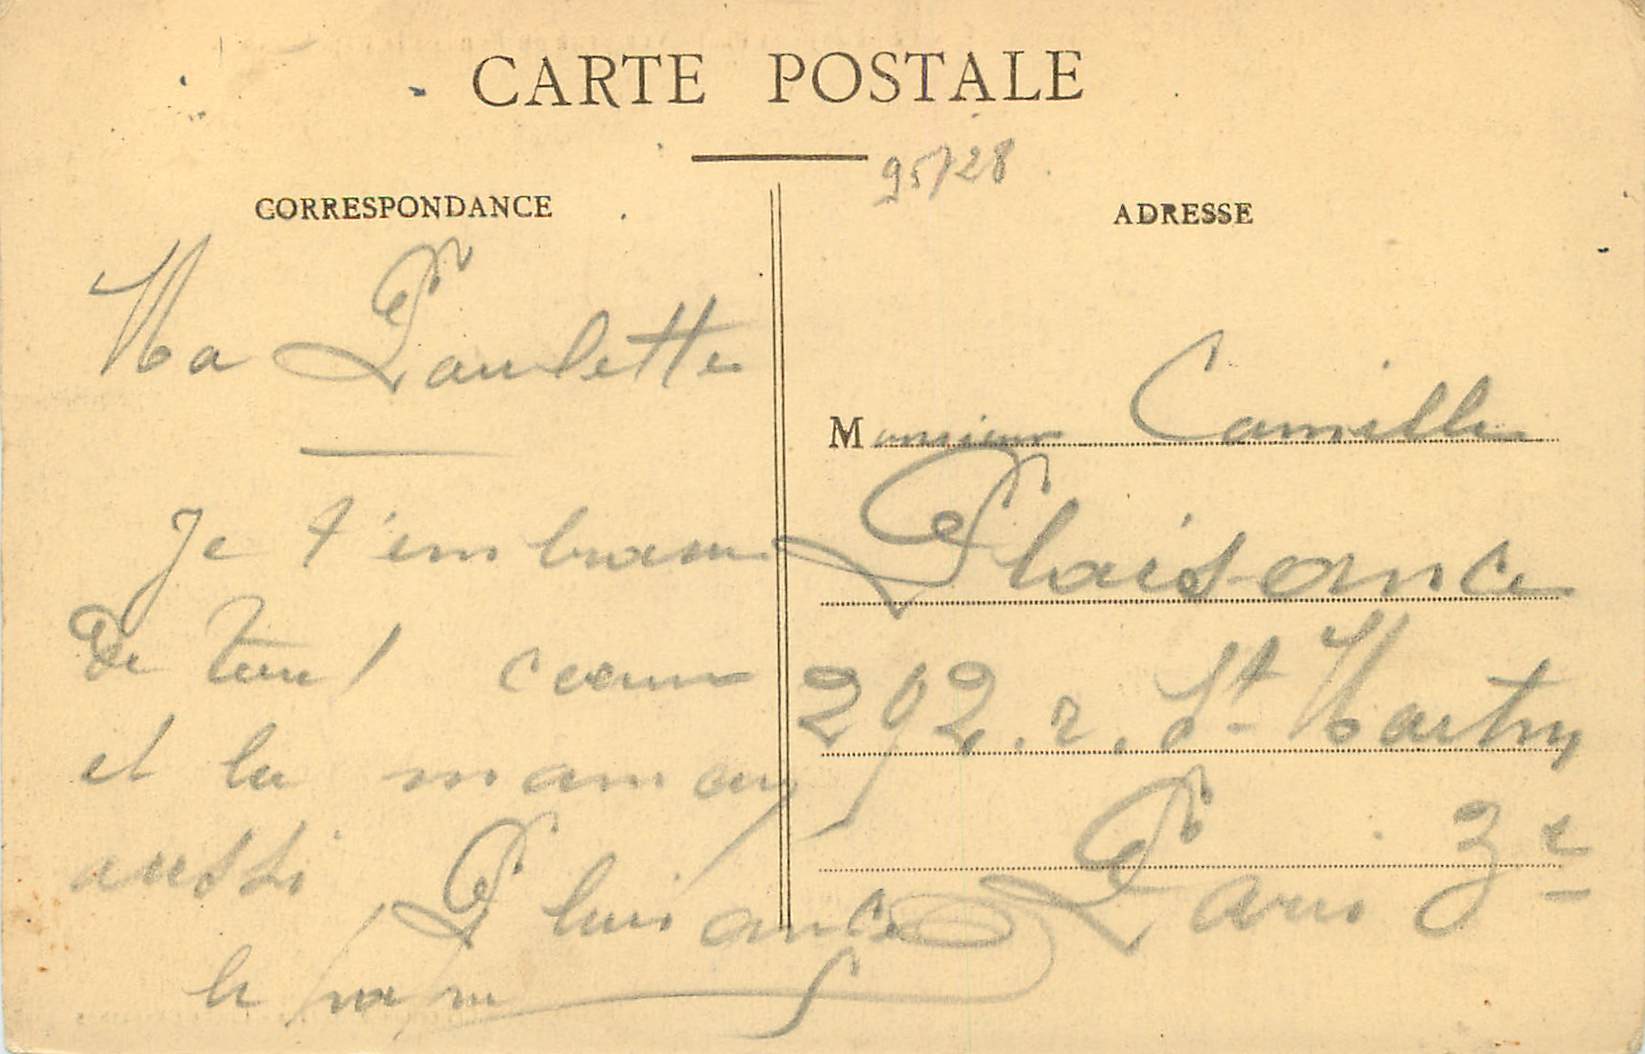 CARTE POSTALE
95/28
CORRESPONDANCE
Ma Paulette
Je t'embrasse
De tout coeur
et la maman
aussi
Plaisance
le papa
ADRESSE
Monsieur Camille
Plaisance
292. r. St- Martin,
Paris 3e